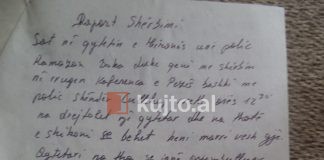 Raport Shërbimi
Sot në qytetin e Tiranës unë polic
Ramazan duke qenë me shërbim
në rrugen Kaferenca e Pezës bashkë me
polic 12
kujto.al
na drejtohet një qytetar dhe na thotë
e shikoni se behet keni marrë vesh gjë
Qytetari na tha se janë